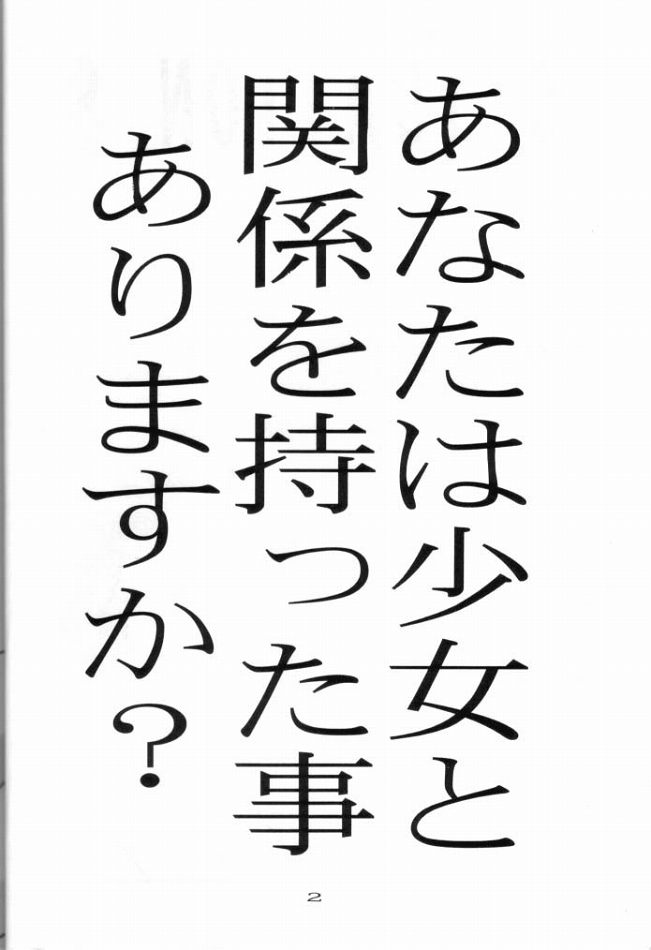 あなたは少女と
関係を持った事
ありますか?
2